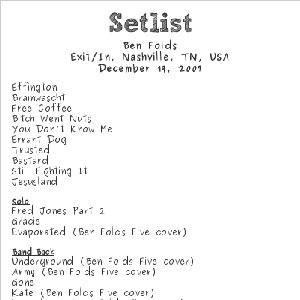 Setlist
Ben Folds
Exit/In, Nashville, TN, USA
December 19, 2007
Effington
Brainwascht
Free Coffee
Bitch Went Nuts
You Don't Know Me
Errant Dog
Trusted
Bastard
Still Fighting It
Jesusland
Solo
Fred Jones Part 2
Gracie
Evaporated (Ben Folds Five cover)
Band Back
Underground (Ben Folds Five cover)
Army (Ben Folds Five cover)
Gone
Kate (Ben Folds Five cover)